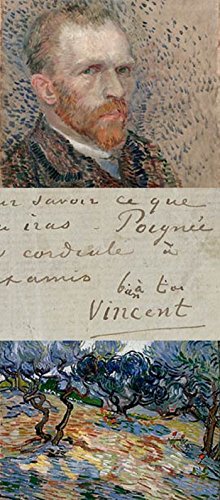 ur savoir ce que
u iras – Poignée
cordiale à
t amis
bien à toi
Vincent